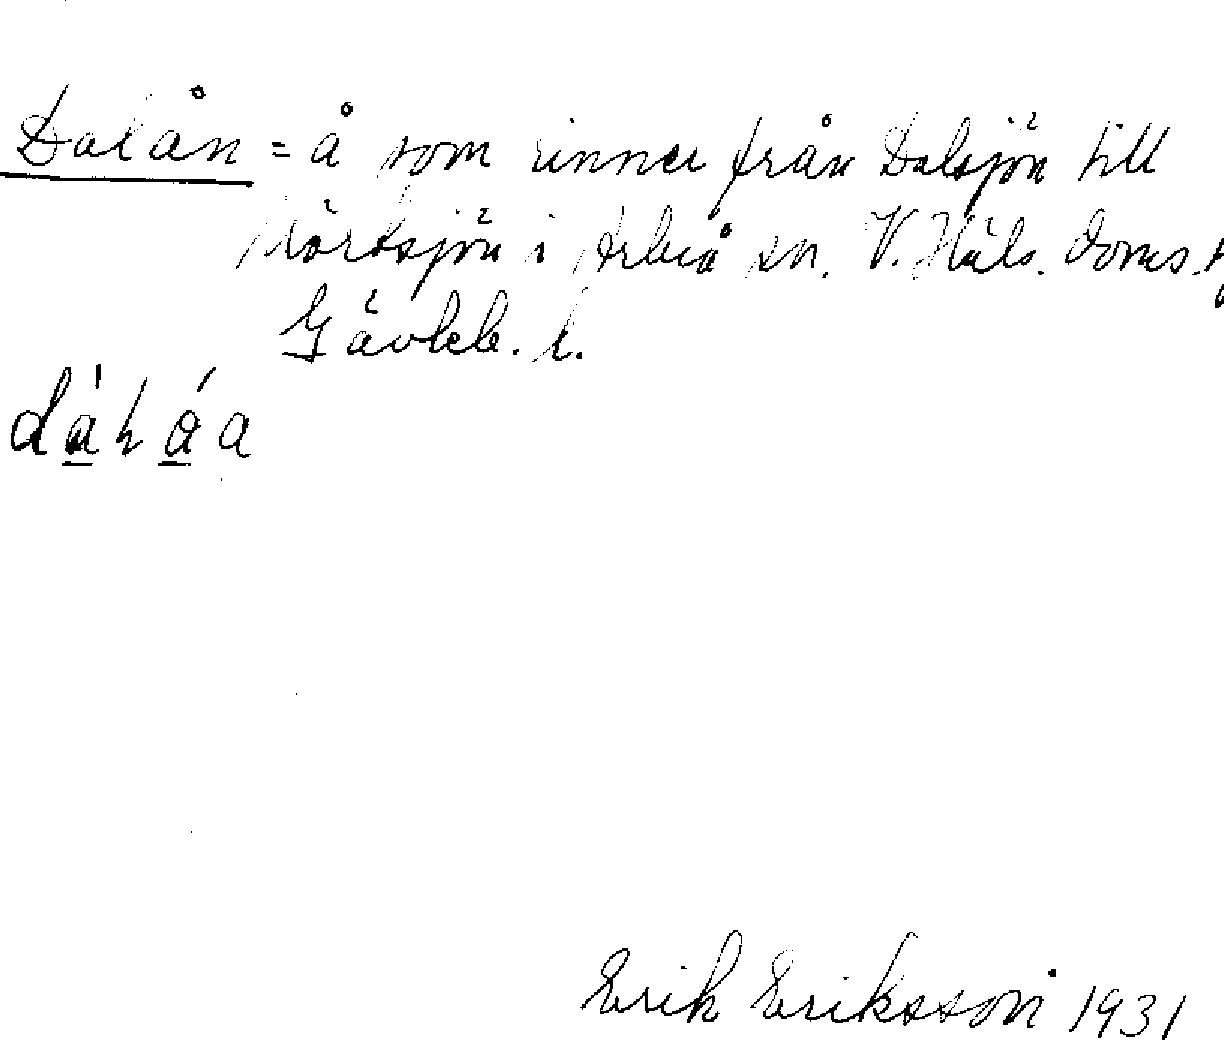 Dalån = å som rinner från Dalsjön till
i Arbrå sn. V. Häls. doms.
Gävleb. l.
Erik Eriksson 1931